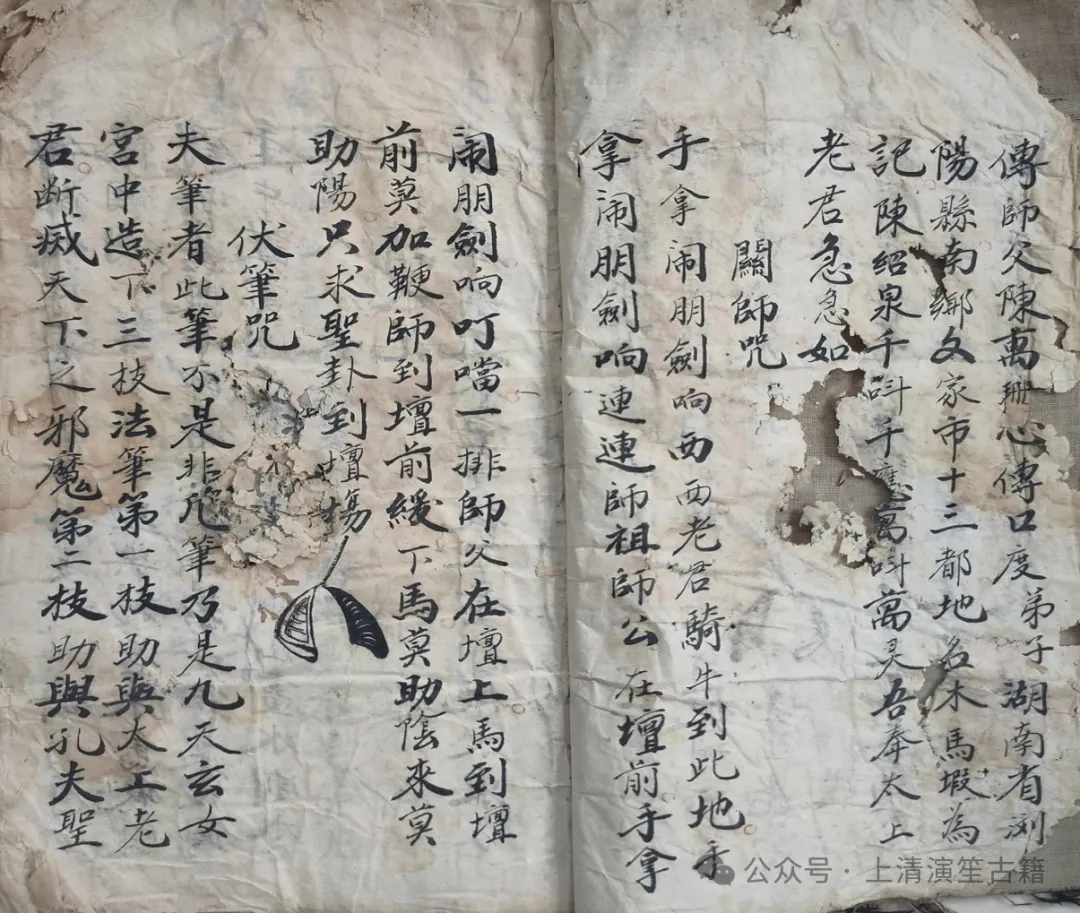 傳師父陳萬珊心傳口度弟子湖南省浏
陽縣南鄉文家市十三都地名木馬塅為
記陳紹泉千呌千應萬呌萬灵吾奉太上
老君急急如
闗師咒
手拿闹朋劍响西西老君騎牛到此地手
拿闹朋劍响連連師祖師公在壇前手拿
闹朋劍响叮噹一排師父在壇上馬到壇
前莫加鞭師到壇前緩下馬莫助陰來莫
助陽只求聖卦到壇塲
伏筆咒
夫筆者此筆不是非凢筆乃是九天玄女
宮中造下三技法筆第一技助與太上老
君断烕天下之邪魔第二技助與孔夫聖
公众号·上清演笙古籍